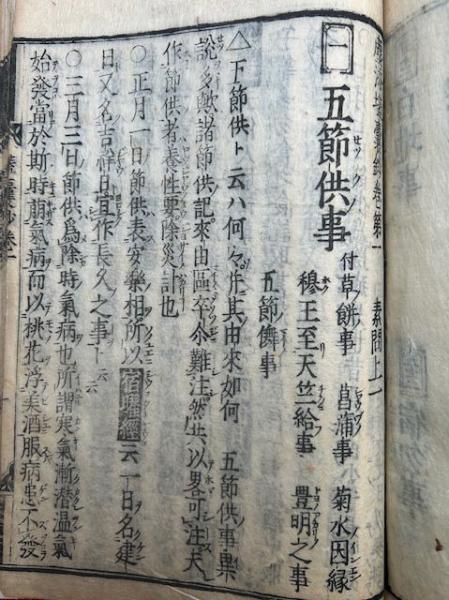 塵添壒囊鈔卷第一　素問上一
一　五節供事　付草餅事　菖蒲事　菊水因縁
穆王至天竺給事　豊明之事
五節儛事
△下節供ト云ハ何々并其由來如何　五節供事異
說多歟諸節供記來由區卒尒難注然共以畧可注夫
作節供者養性要除災計也
○正月一日節供表安樂相所以宿曜經云一日名建
日又名吉祥日宜作長久之事ト云云
○三月三日節供爲除時氣病也所謂寒氣漸潜温氣
始發當於斯時萠氣病而以桃花浮美酒服病患不發